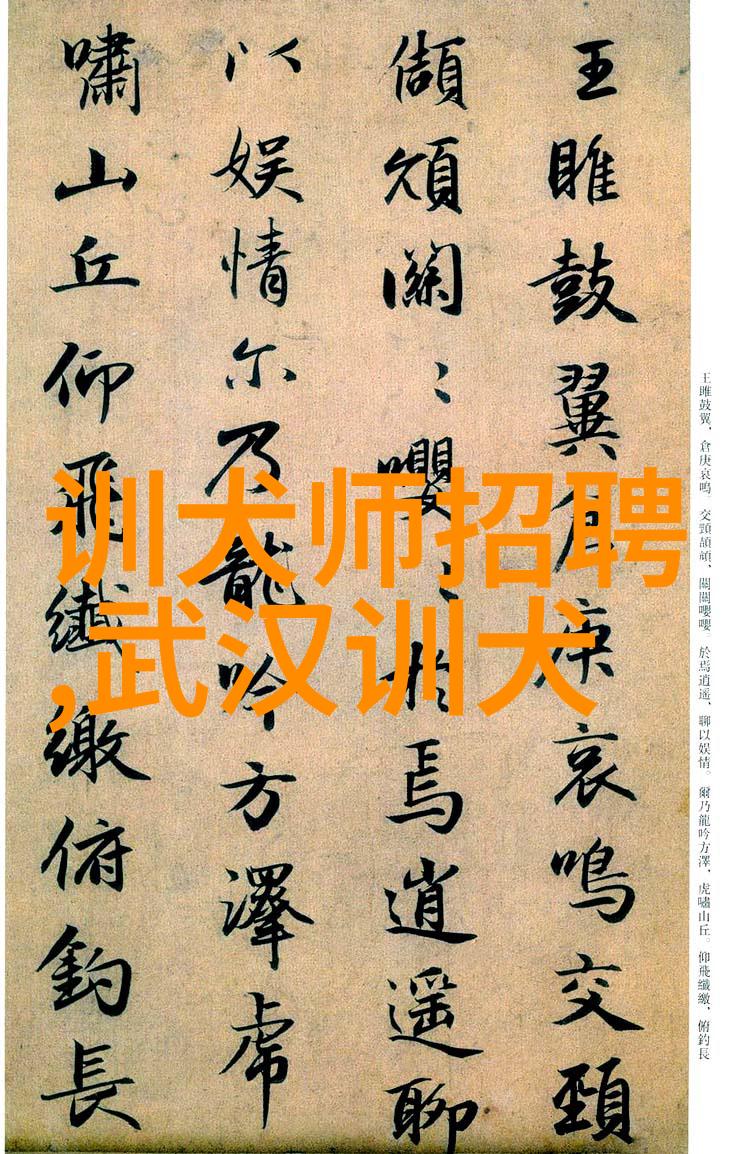 王雎鼓翼倉庚哀鳴交頸
頡頏關〻嚶〻於焉逍遥聊
以娱情尔乃龍吟方澤虎
嘯山丘仰飛纖繳俯釣長
王雎鼓翼、倉庚哀鳴。交頸頡頏、關關嚶嚶。於焉逍遥、聊以娱情。爾乃龍吟方澤、虎嘯山丘。仰飛纖繳、俯釣長
训犬师招聘
,武汉训犬